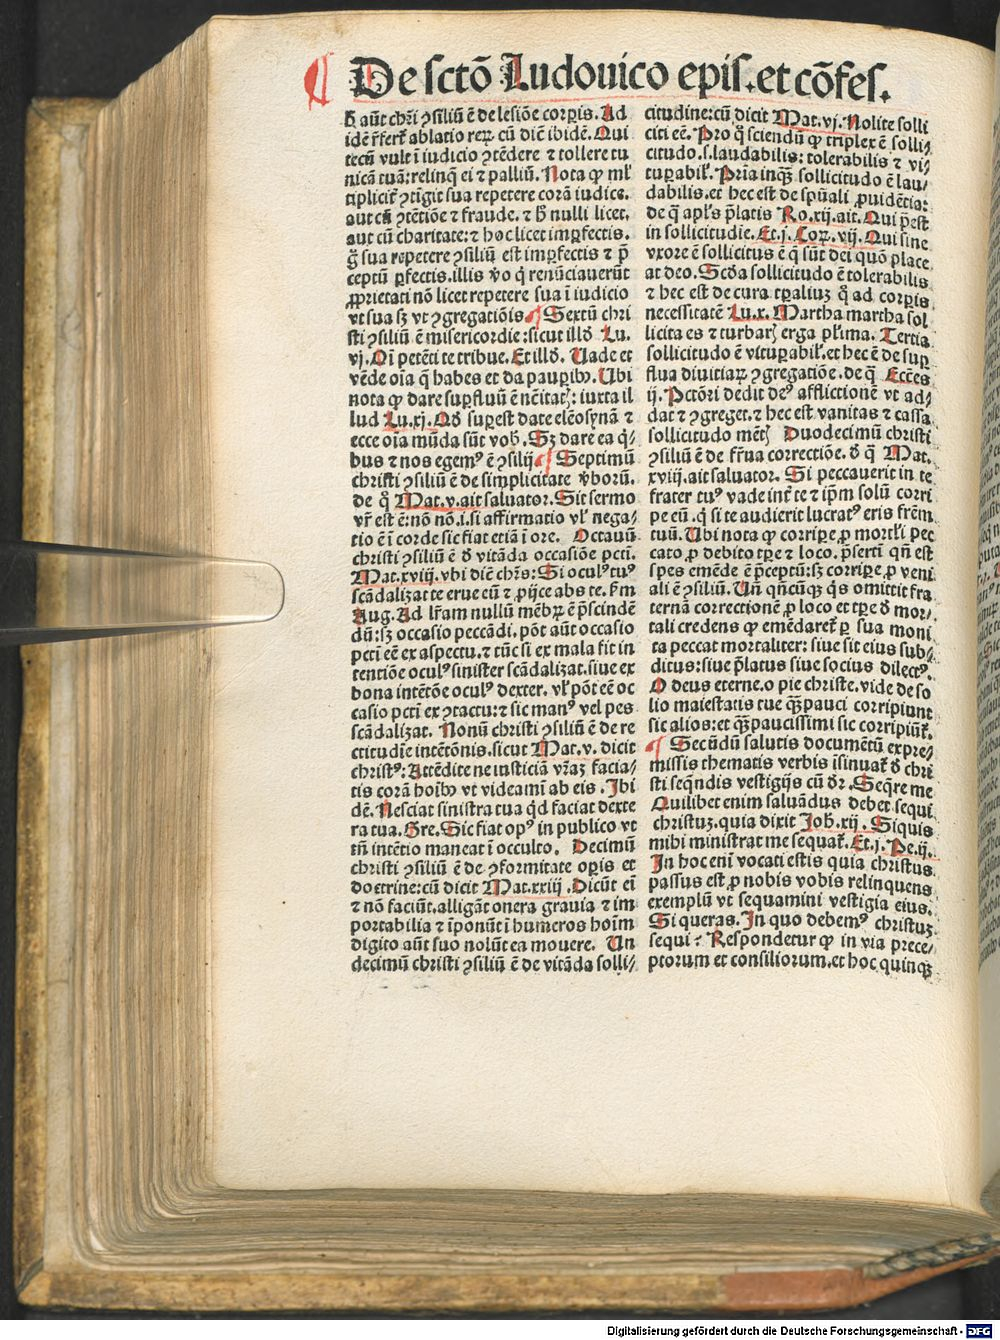 ¶ De sctō Ludouico epiſ. et cōfeſ.
h̄ aūt chr̄i ꝯſiliū ē de leſiōe corꝑis. Ad
idē r̄fert᷑ ablatio reꝝ cū diē ibidē. Qui
tecū vult ī iudicio ꝯtēdere ⁊ tollere tu
nicā tuā: relinq̄ ei ⁊ palliū. Nota ꝙ ml̓
tiplicit᷑ ꝯtigit ſua repetere corā iudice.
aut cū ꝯtētiōe ⁊ fraude. ⁊ h̄ nulli licet.
aut cū charitate: ⁊ hoc licet imꝑfectis.
g̊ ſua repetere ꝯſiliū eſt imꝑfectis ⁊ p̄
ceptū ꝑfectis. illis v̓o q̄ renūciauerūt
ꝓprietati nō licet repetere ſua ī iudicio
vt ſua ſꝫ vt ꝯgregatiōis ¶ Sextū chri
ſti ꝯſiliū ē miſericordie: ſicut illd̓ Lu.
vj. Oī petēti te tribue. Et illd̓. Uade et
vēde oīa q̄ habes et da pauꝑibꝰ. Ubi
nota ꝙ dare ſuꝑfluū ē nēitatꝭ: iuxta il
lud Lu.xj. Qd̓ ſuꝑeſt date elēoſynā ⁊
ecce oīa mūda ſūt vob̓. Sꝫ dare ea q̓⸗
bus ⁊ nos egemꝰ ē ꝯſilij ¶ Septimū
chriſti ꝯſiliū ē de ſimplicitate v̓borū.
de q̊ Mat.v. ait ſaluator. Sit ſermo
vr̄ eſt ē: nō nō. i. ſi affirmatio vl̓ nega⸗
tio ē ī corde ſic fiat etiā ī ore. Octauū
chriſti ꝯſiliū ē d̓ vitāda occaſiōe pcti.
Mat.xviij. vbi diē chr̄s: Si oculꝰ tuꝰ
ſcādalizat te erue eū ⁊ ꝓijce abs te. ẜm
Aug. Ad lr̄am nullū mēbꝝ ē p̄ſcindē
dū: ſꝫ occaſio peccādi. pōt aūt occaſio
pcti eē ex aſpectu. ⁊ tūc ſi ex mala fit in
tentiōe oculꝰ ſiniſter ſcādalizat. ſiue ex
bona intētōe oculꝰ dexter. vl̓ pōt eē oc
caſio pcti ex ꝯtactu: ⁊ ſic manꝰ vel pes
ſcādalizat. Nonū chriſti ꝯſiliū ē de re
ctitudīe intētōnis. ſicut Mat.v. dicit
chriſtꝰ: Attēdite ne iuſticiā vr̄aꝫ facia⸗
tis corā hoībꝰ vt videamī ab eis. Ibi
dē. Neſciat ſiniſtra tua q̓d faciat dexte
ra tua. Gre. Sic fiat opꝰ in publico vt
tn̄ intētio maneat ī occulto. Decimū
chriſti ꝯſiliū ē de ꝯformitate oꝑis et
doctrine: cū dicit Mat.xxiij. Dicūt eī
⁊ nō faciūt. alligāt onera grauia ⁊ im
portabilia ⁊ īponūt ī humeros hoīm
digito aūt ſuo nolūt ea mouere. Un
decimū chriſti ꝯſiliū ē de vitāda ſolli⸗
citudine: cū dicit Mat.vj. Nolite ſolli
citi eē. Pro q̊ ſciendū ꝙ triplex ē ſolli⸗
citudo. ſ. laudabilis: tolerabilis ⁊ vi⸗
tuꝑabil̓. Pria inqꝫ ſollicitudo ē lau⸗
dabilis. et hec eſt de ſpūali ꝓuidētia:
de q̄ apl̓s p̄latis Ro.xij. ait. Qui p̄eſt
in ſollicitudie. Et.j. Coꝝ.vij. Qui ſine
vxore ē ſollicitus ē q̄ ſūt dei quō place
at deo. Scd̓a ſollicitudo ē tolerabilis
⁊ hec eſt de cura tꝑaliuꝫ q̄ ad corꝑis
neceſſitatē Lu.x. Martha martha ſol
licita es ⁊ turbarꝭ erga pl̓ima. Tertia
ſollicitudo ē vituꝑabil̓. et hec ē de ſuꝑ
flua diuitiaꝝ ꝯgregatiōe. de q̄ Eccēs
ij. Pctōri dedit deꝰ afflictionē vt ad⸗
dat ⁊ ꝯgreget. ⁊ hec eſt vanitas ⁊ caſſa
ſollicitudo mētꝭ Duodecimū chriſti
ꝯſiliū ē de fr̄na correctiōe. d̓ q̄ Mat.
xviij. ait ſaluator. Si peccauerit in te
frater tuꝰ vade int̓ te ⁊ ip̄m ſolū corri
pe eū. ꝙ ſi te audierit lucratꝰ eris frēm
tuū. Ubi nota ꝙ corriꝑe ꝓ mortl̓i pec
cato ꝓ debito tꝑe ⁊ loco. p̄ſerti qn̄ eſt
ſpes emēde ē p̄ceptū: ſꝫ corriꝑe ꝓ veni
ali ē ꝯſiliū. Un̄ qn̄cūqꝫ q̓s omittit fra
ternā correctionē ꝓ loco et tꝑe d̓ mor⸗
tali credens ꝙ emēdaret᷑ ꝑ ſua moni
ta peccat mortaliter: ſiue ſit eius ſub⸗
ditus: ſiue p̄latus ſiue ſocius dilectꝰ.
O deus eterne. o pie chriſte. vide de ſo
lio maieſtatis tue qꝫ pauci corripiunt
ſic alios: et qꝫ pauciſſimi ſic corripiūt᷑.
¶ Secūdū ſalutis documētū expre⸗
miſſis thematis verbis iſinuat᷑ d̓ chri
ſti ſeqn̄dis veſtigijs cū dr̄. Seq̄re me
Quilibet enim ſaluādus debet ſequi
chriſtuꝫ. quia dixit Joh̓.xij. Siquis
mihi miniſtrat me ſequat᷑. Et.j. Pe.ij.
In hoc enī vocati eſtis quia chriſtus
paſſus eſt ꝓ nobis vobis relinquens
exemplū vt ſequamini veſtigia eius.
Si queras. In quo debemꝰ chriſtuꝫ
ſequi? Reſpondetur ꝙ in via prece⸗
ptorum et conſiliorum. et hoc quinqꝫ
Digitalisierung gefördert durch die Deutsche Forschungsgemeinschaft - DFG